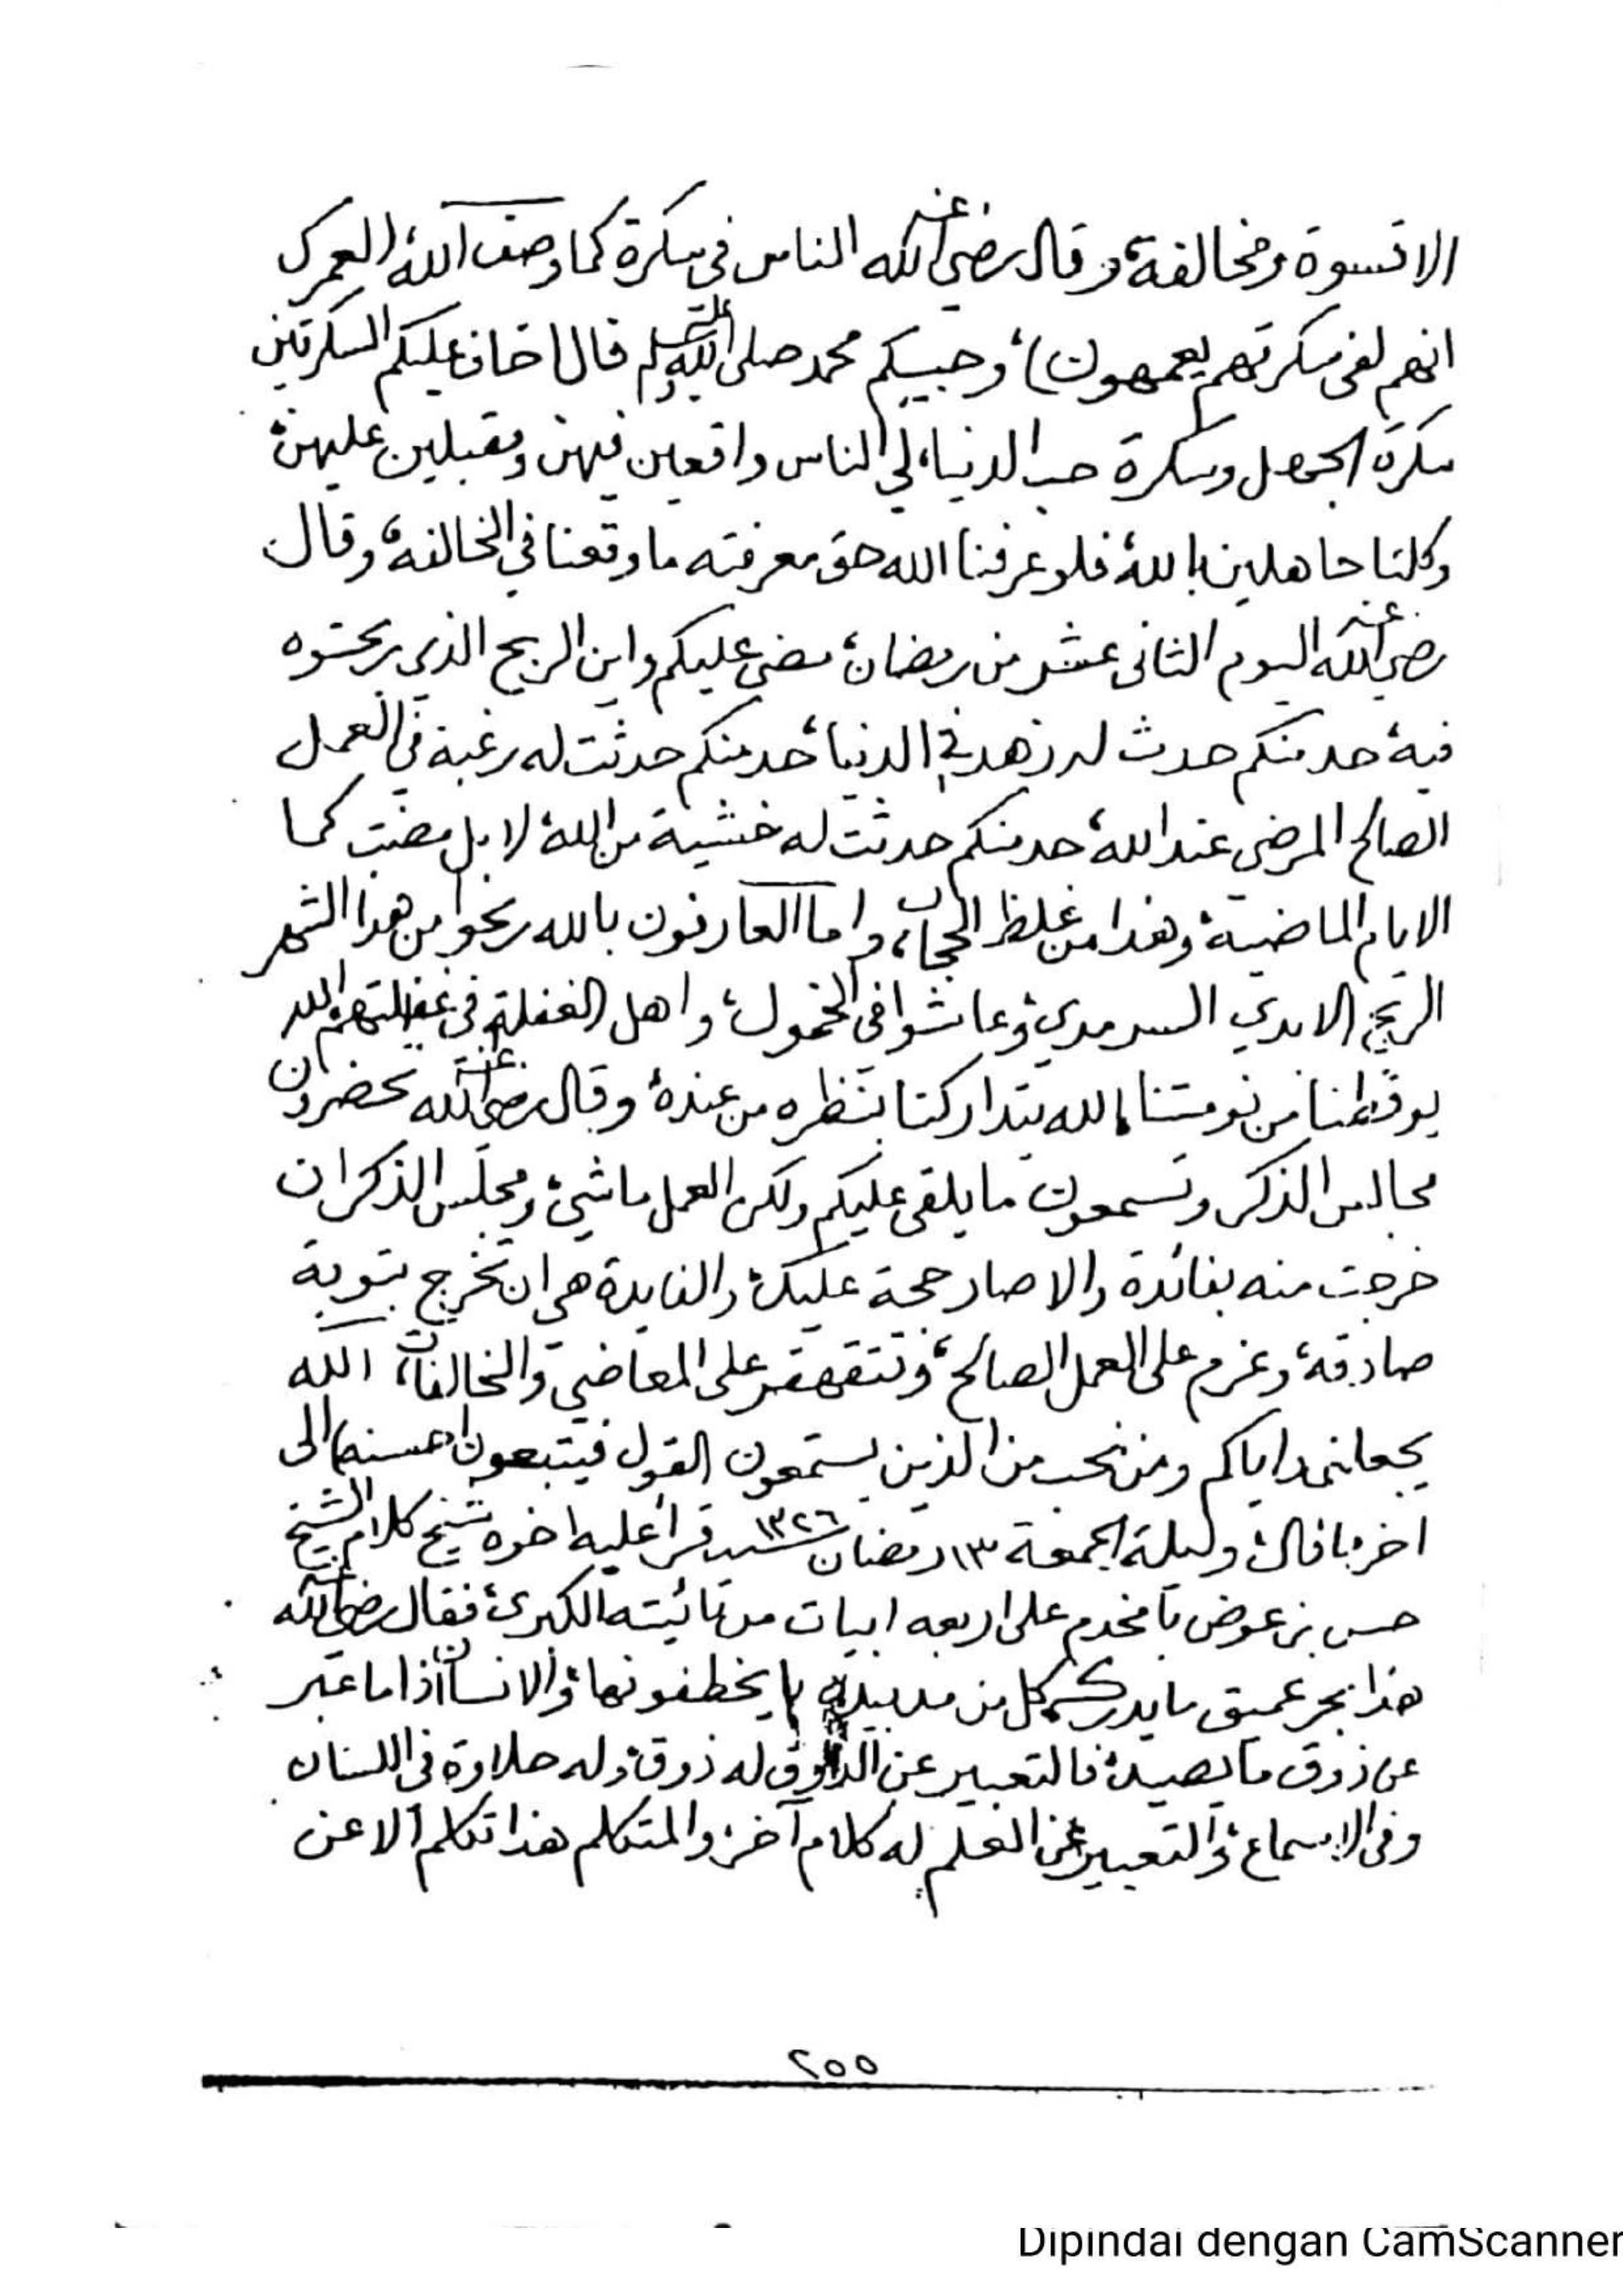 الاقسوة ومخالفة، وقال رضي الله عنه الناس في سكرة كما وصف الله (لعمرك
انهم لفي سكرتهم يعمهون)، وحبيبكم محمد صلى الله عليه وسلم قال اخاف عليكم السكرتين
سكرة الجهل وسكرة حب الدنيا، لي الناس واقعين فيهن ومقبلين عليهن،
وكلنا جاهلين بالله، فلو عرفنا الله حق معرفته ما وقعنا في المخالفة، وقال
رضي الله عنه اليوم الثاني عشر من رمضان، مضى عليكم واين الربح الذي ربحتوه
فيه، حد منكم حدث له زهد في الدنيا، حد منكم حدثت له رغبة في العمل
الصالح المرضي عند الله، حد منكم حدثت له خشية من الله، لا بل مضت كما
الايام الماضية، وهذا من غلظ الحجاب، واما العارفون بالله ربحوا من هذا الشهر
الربح الابدي السرمدي، وعاشوا في الخمول، واهل الغفلة في غفلتهم، الله
يوقظنا من نومتنا، الله يتداركنا بنظره من عنده، وقال رضي الله عنه تحضرون
مجالس الذكر وتسمعون ما يلقى عليكم ولكن العمل ماشي، ومجلس الذكر ان
خرجت منه بفائدة والا صار حجة عليك، والفايدة هي ان تخرج بتوبة
صادقة، وعزم على العمل الصالح، وتتقهقر على المعاصي والمخالفات، الله
يجعلني واياكم ومن نحب من الذين يستمعون القول فيتبعون احسنه) الى
اخر ما قال، وليلة الجمعة ١٣ رمضان سنة ١٣٢٦ قرأ عليه اخوه شيخ كلام الشيخ
حسن بن عوض بامخدم على اربعه ابيات من تائيته الكبرى، فقال رضي الله عنه
هذا بحر عميق ما يدركه كل من مد يخطفونها، والانسان اذا ما عبر
عن ذوق ما يصيد، فالتعبير عن الذوق له ذوق، وله حلاوة في اللسان
وفي الاسماع، والتعبير عن العلم له كلام آخر، والمتكلم هذا تكلم الا عن
٢٥٥
Dipindai dengan CamScanner